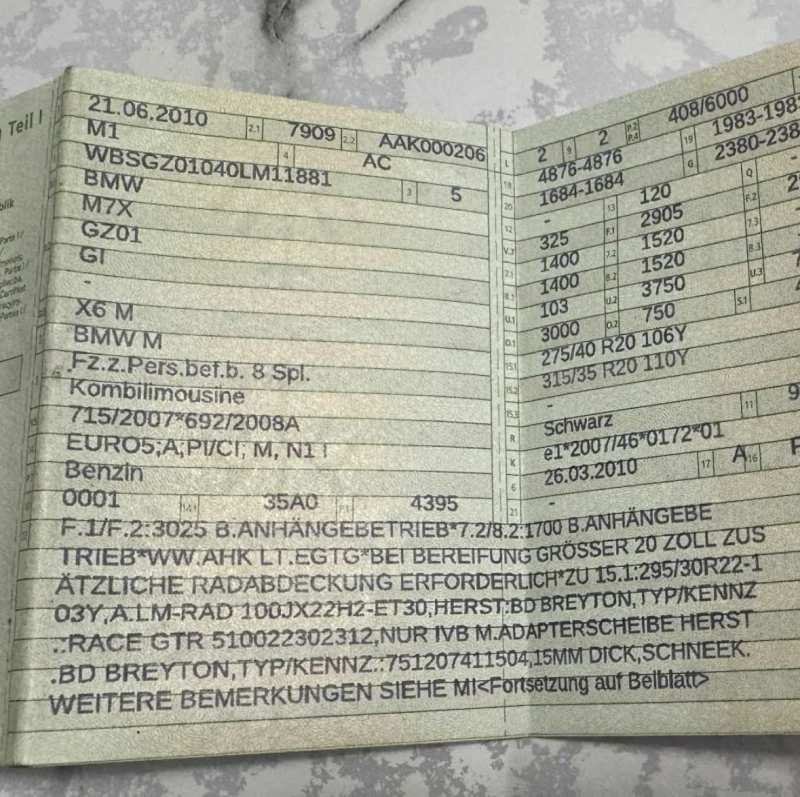 Teil I
21.06.2010 2.1 7909 2.2 AAK000206
M1 4 AC
WBSGZ01040LM11881 3 5
BMW
M7X
GZ01
GI
-
X6 M
BMW M
Fz.z.Pers.bef.b. 8 Spl.
Kombilimousine
715/2007*692/2008A
EURO5;A;PI/CI; M, N1 I
Benzin
0001 14.1 35A0 P.1 4395
L 2 9 2 P.2 P.4 408/6000
18 4876-4876 19 1983-1983
20 1684-1684 G 2380-238
12 - 13 120 Q -
V.7 325 F.1 2905 F.2
7.1 1400 7.2 1520 7.3 -
8.1 1400 8.2 1520 8.3
U.1 103 U.2 3750 U.3
O.1 3000 O.2 750 S.1
15.1 275/40 R20 106Y
15.2 315/35 R20 110Y
15.3 -
R Schwarz 11 9
K e1*2007/46*0172*01
6 26.03.2010 17 A 16
21 -
F.1/F.2:3025 B.ANHÄNGEBETRIEB*7.2/8.2:1700 B.ANHÄNGEBE
TRIEB*WW.AHK LT.EGTG*BEI BEREIFUNG GRÖSSER 20 ZOLL ZUS
ÄTZLICHE RADABDECKUNG ERFORDERLICH*ZU 15.1:295/30R22-1
03Y,A.LM-RAD 100JX22H2-ET30,HERST:BD BREYTON,TYP/KENNZ
.:RACE GTR 510022302312,NUR IVB M.ADAPTERSCHEIBE HERST
.BD BREYTON,TYP/KENNZ.:751207411504,15MM DICK,SCHNEEK.
WEITERE BEMERKUNGEN SIEHE MI<Fortsetzung auf Beiblatt>